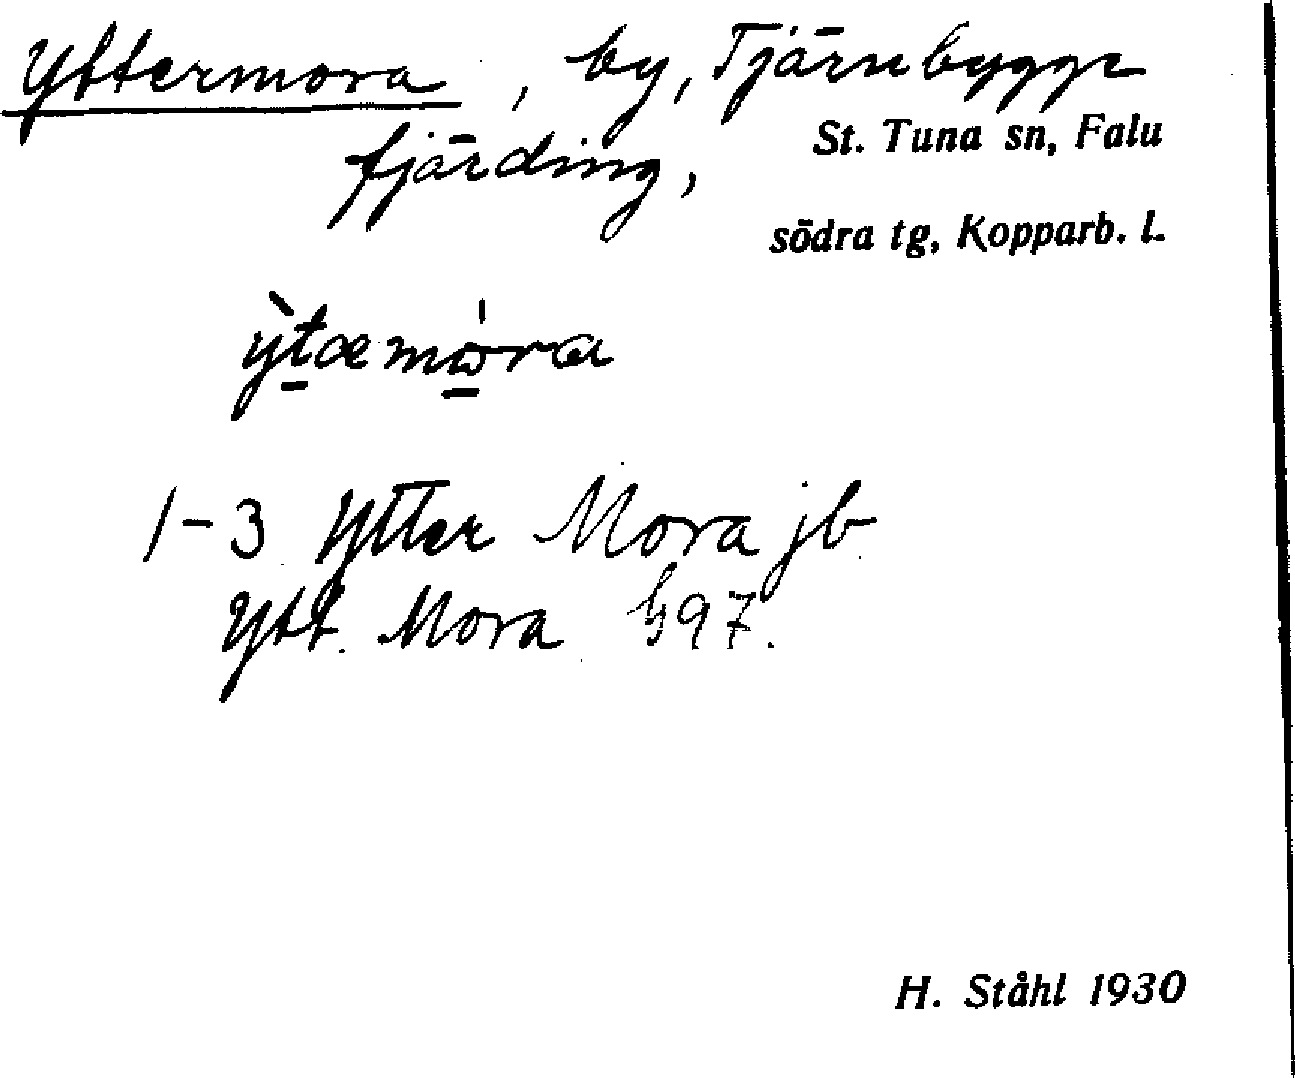 Yttermora, by, Tjärnbygge
fjärding,
St. Tuna sn, Falu
södra tg, Kopparb. l.
ỳtæmωra
1-3 Ytter Mora jb
Ytt. Mora G97.
H. Ståhl 1930